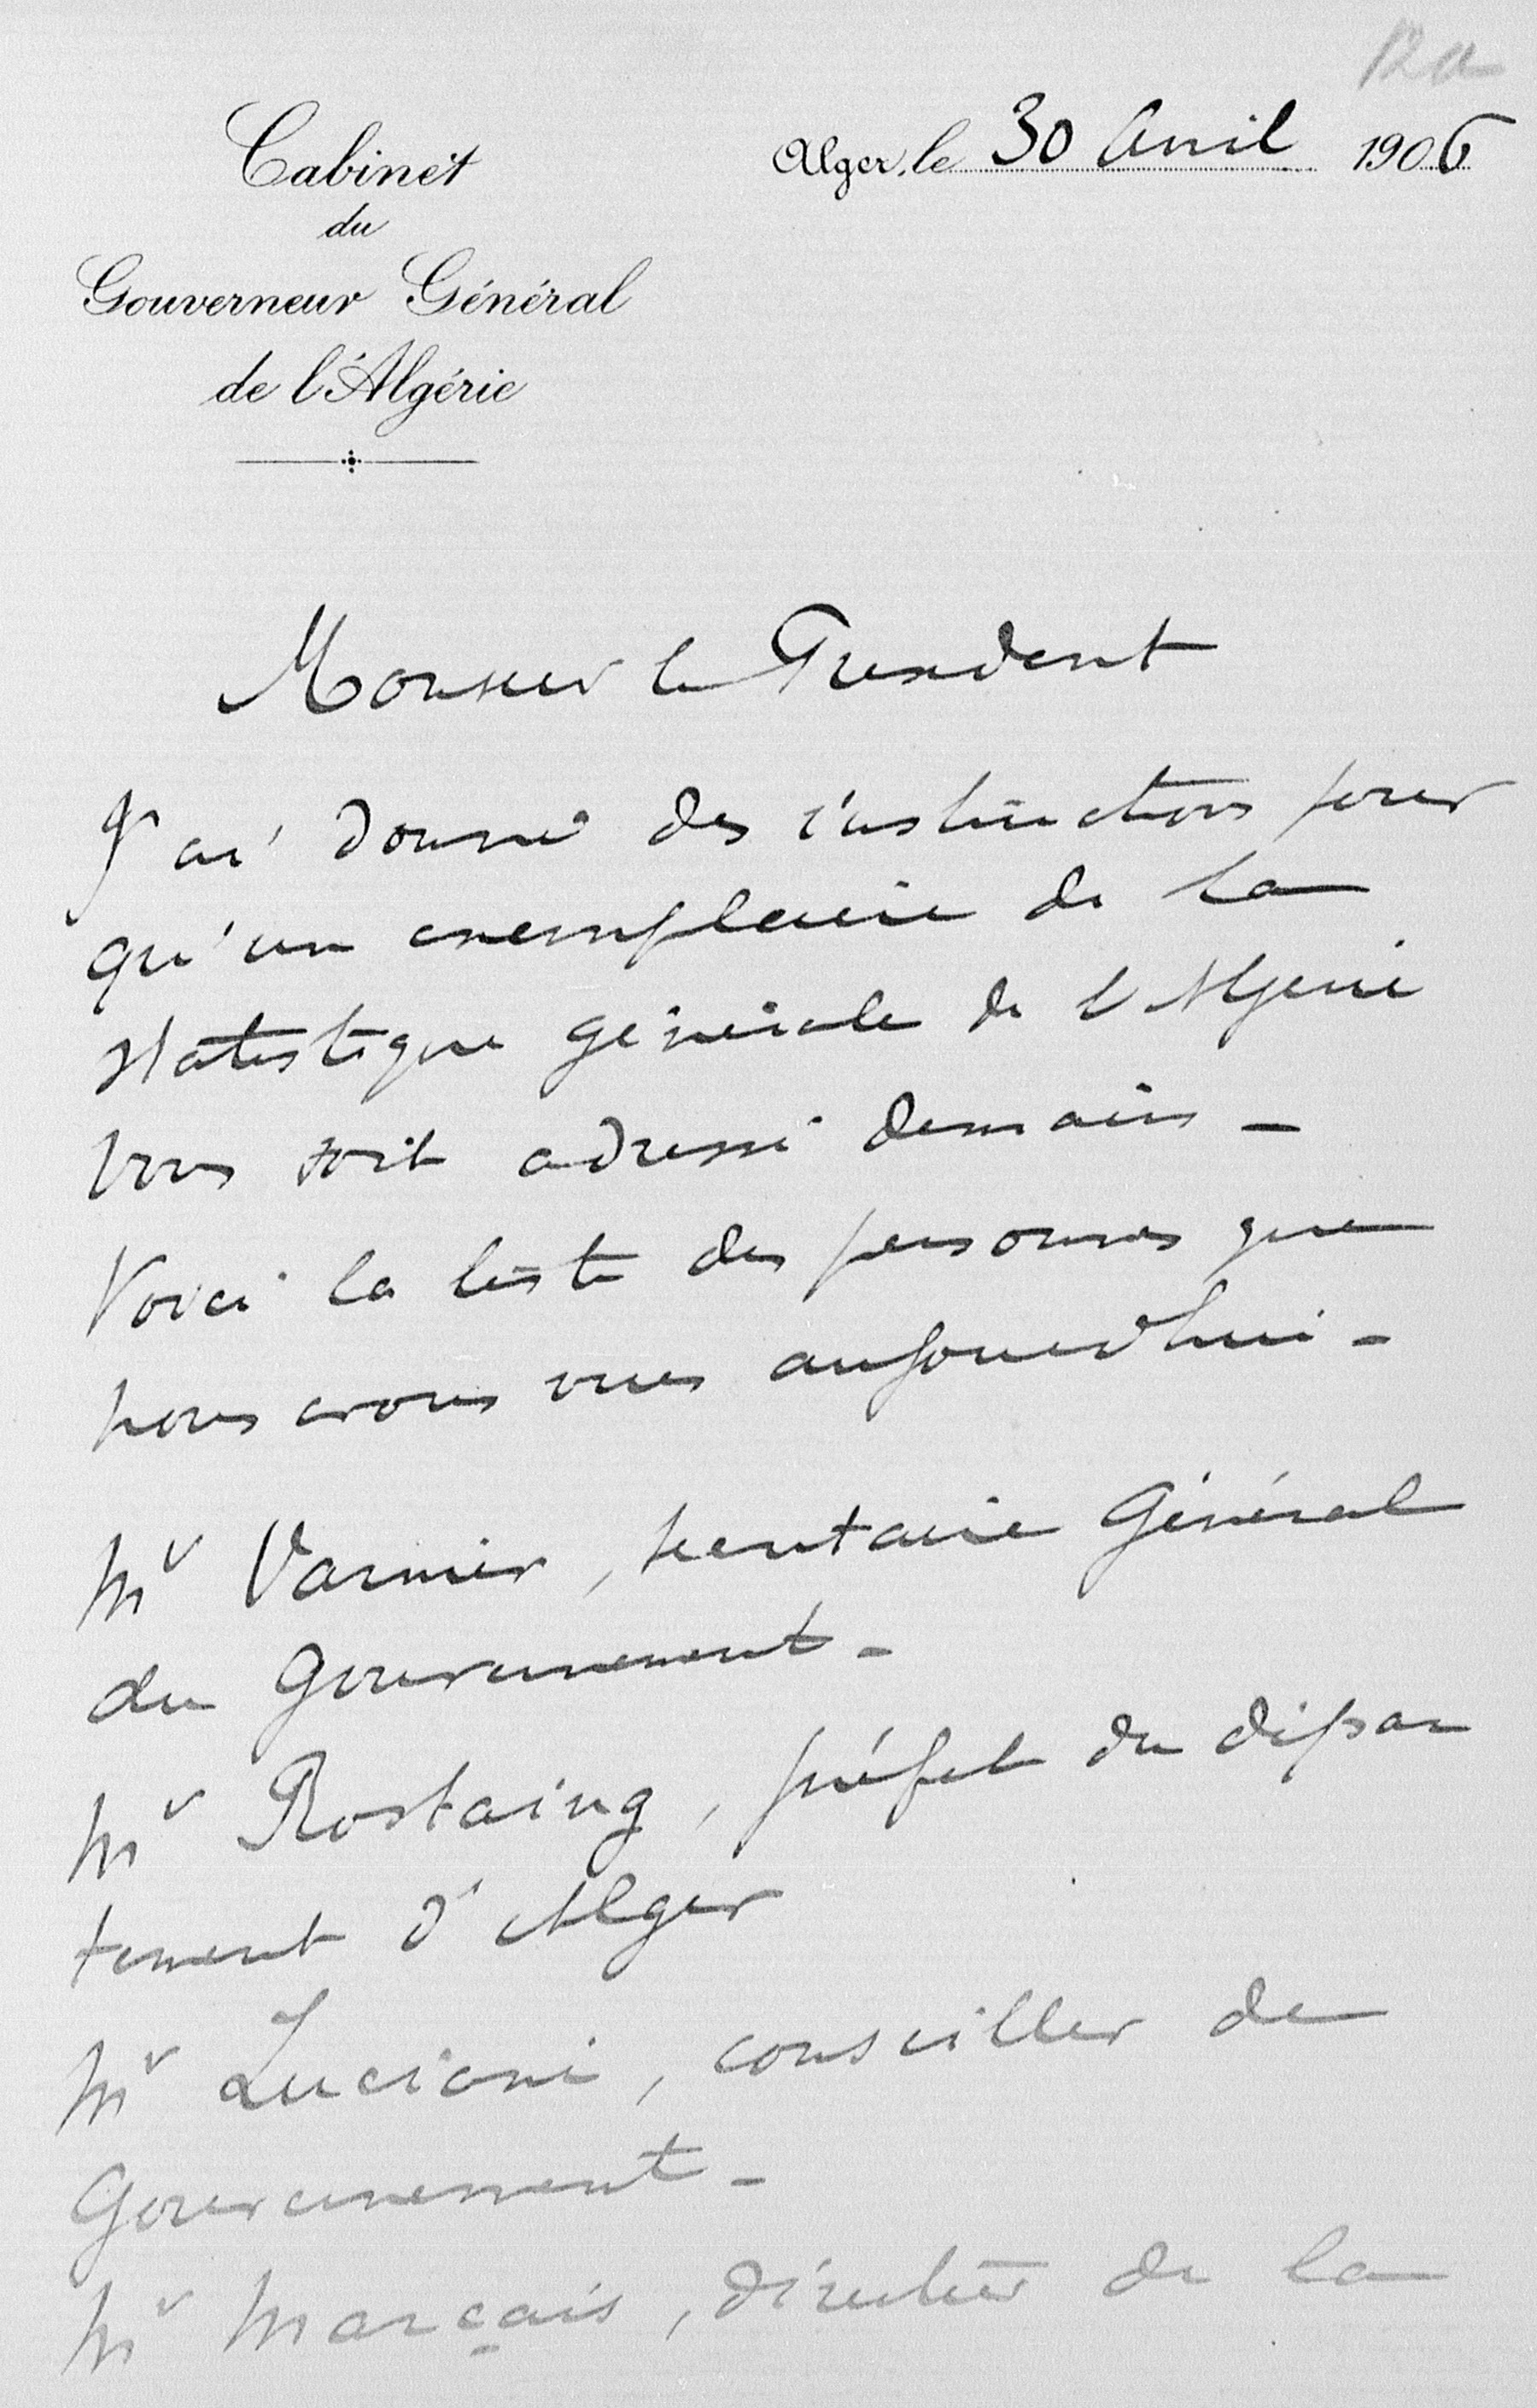 12a
Cabinet
du
Gouverneur Général
de l'Algérie
Alger, le 30 Avril 1906
Monsieur le President
J'ai donné des instructions pour
qu'un exemplaire de la
statistique générale de l'Algerie
vous soit adressé demain -
Voici la liste des personnes que
nous avons vues aujourd'hui -
Mr Varnier, secretaire Général
du Gouvernement -
Mr Rostaing, préfet du dépar
tement d'Alger
Mr Luciani, conseiller de
Gouvernement -
Mr Marçais, directeur de la